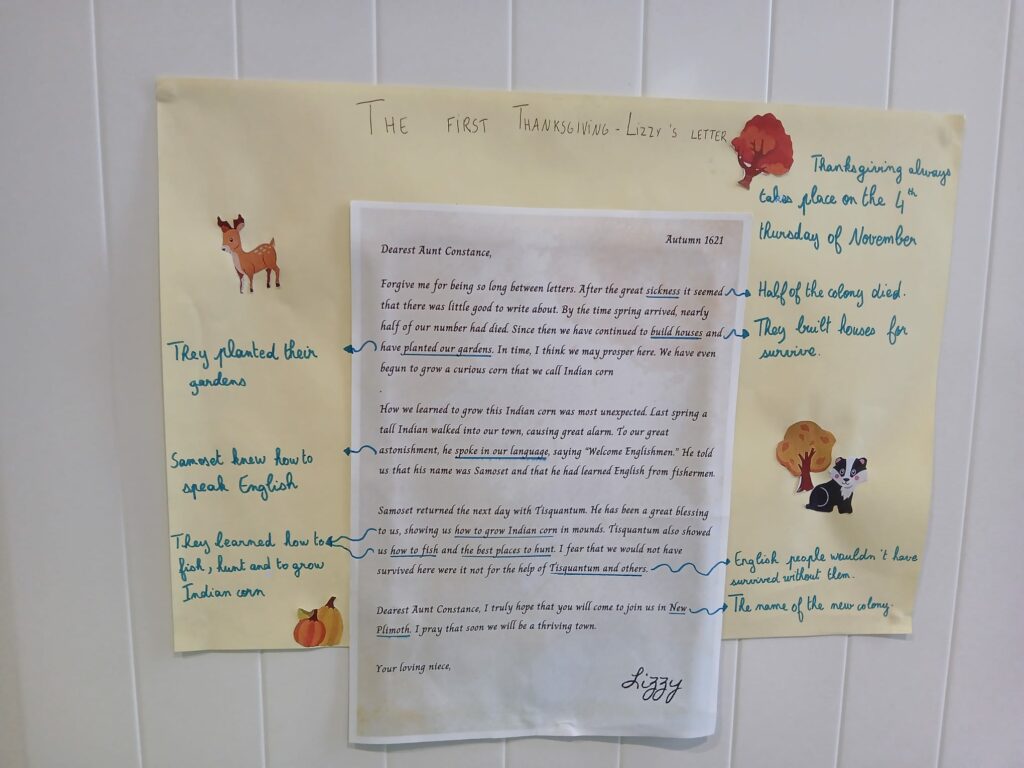 THE FIRST THANKSGIVING - LIZZY'S LETTER
Thanksgiving always
takes place on the 4th
thursday of November
Autumn 1621
Dearest Aunt Constance,
Forgive me for being so long between letters. After the great sickness it seemed
that there was little good to write about. By the time spring arrived, nearly
half of our number had died. Since then we have continued to build houses and
have planted our gardens. In time, I think we may prosper here. We have even
begun to grow a curious corn that we call Indian corn
.
How we learned to grow this Indian corn was most unexpected. Last spring a
tall Indian walked into our town, causing great alarm. To our great
astonishment, he spoke in our language, saying "Welcome Englishmen." He told
us that his name was Samoset and that he had learned English from fishermen.
Samoset returned the next day with Tisquantum. He has been a great blessing
to us, showing us how to grow Indian corn in mounds. Tisquantum also showed
us how to fish and the best places to hunt. I fear that we would not have
survived here were it not for the help of Tisquantum and others.
Dearest Aunt Constance, I truly hope that you will come to join us in New
Plimoth. I pray that soon we will be a thriving town.
Your loving niece,
Lizzy
They planted their
gardens
Samoset knew how to
speak English
They learned how to
fish, hunt and to grow
Indian corn
Half of the colony died.
They built houses for
survive.
English people wouldn't have
survived without them.
The name of the new colony.